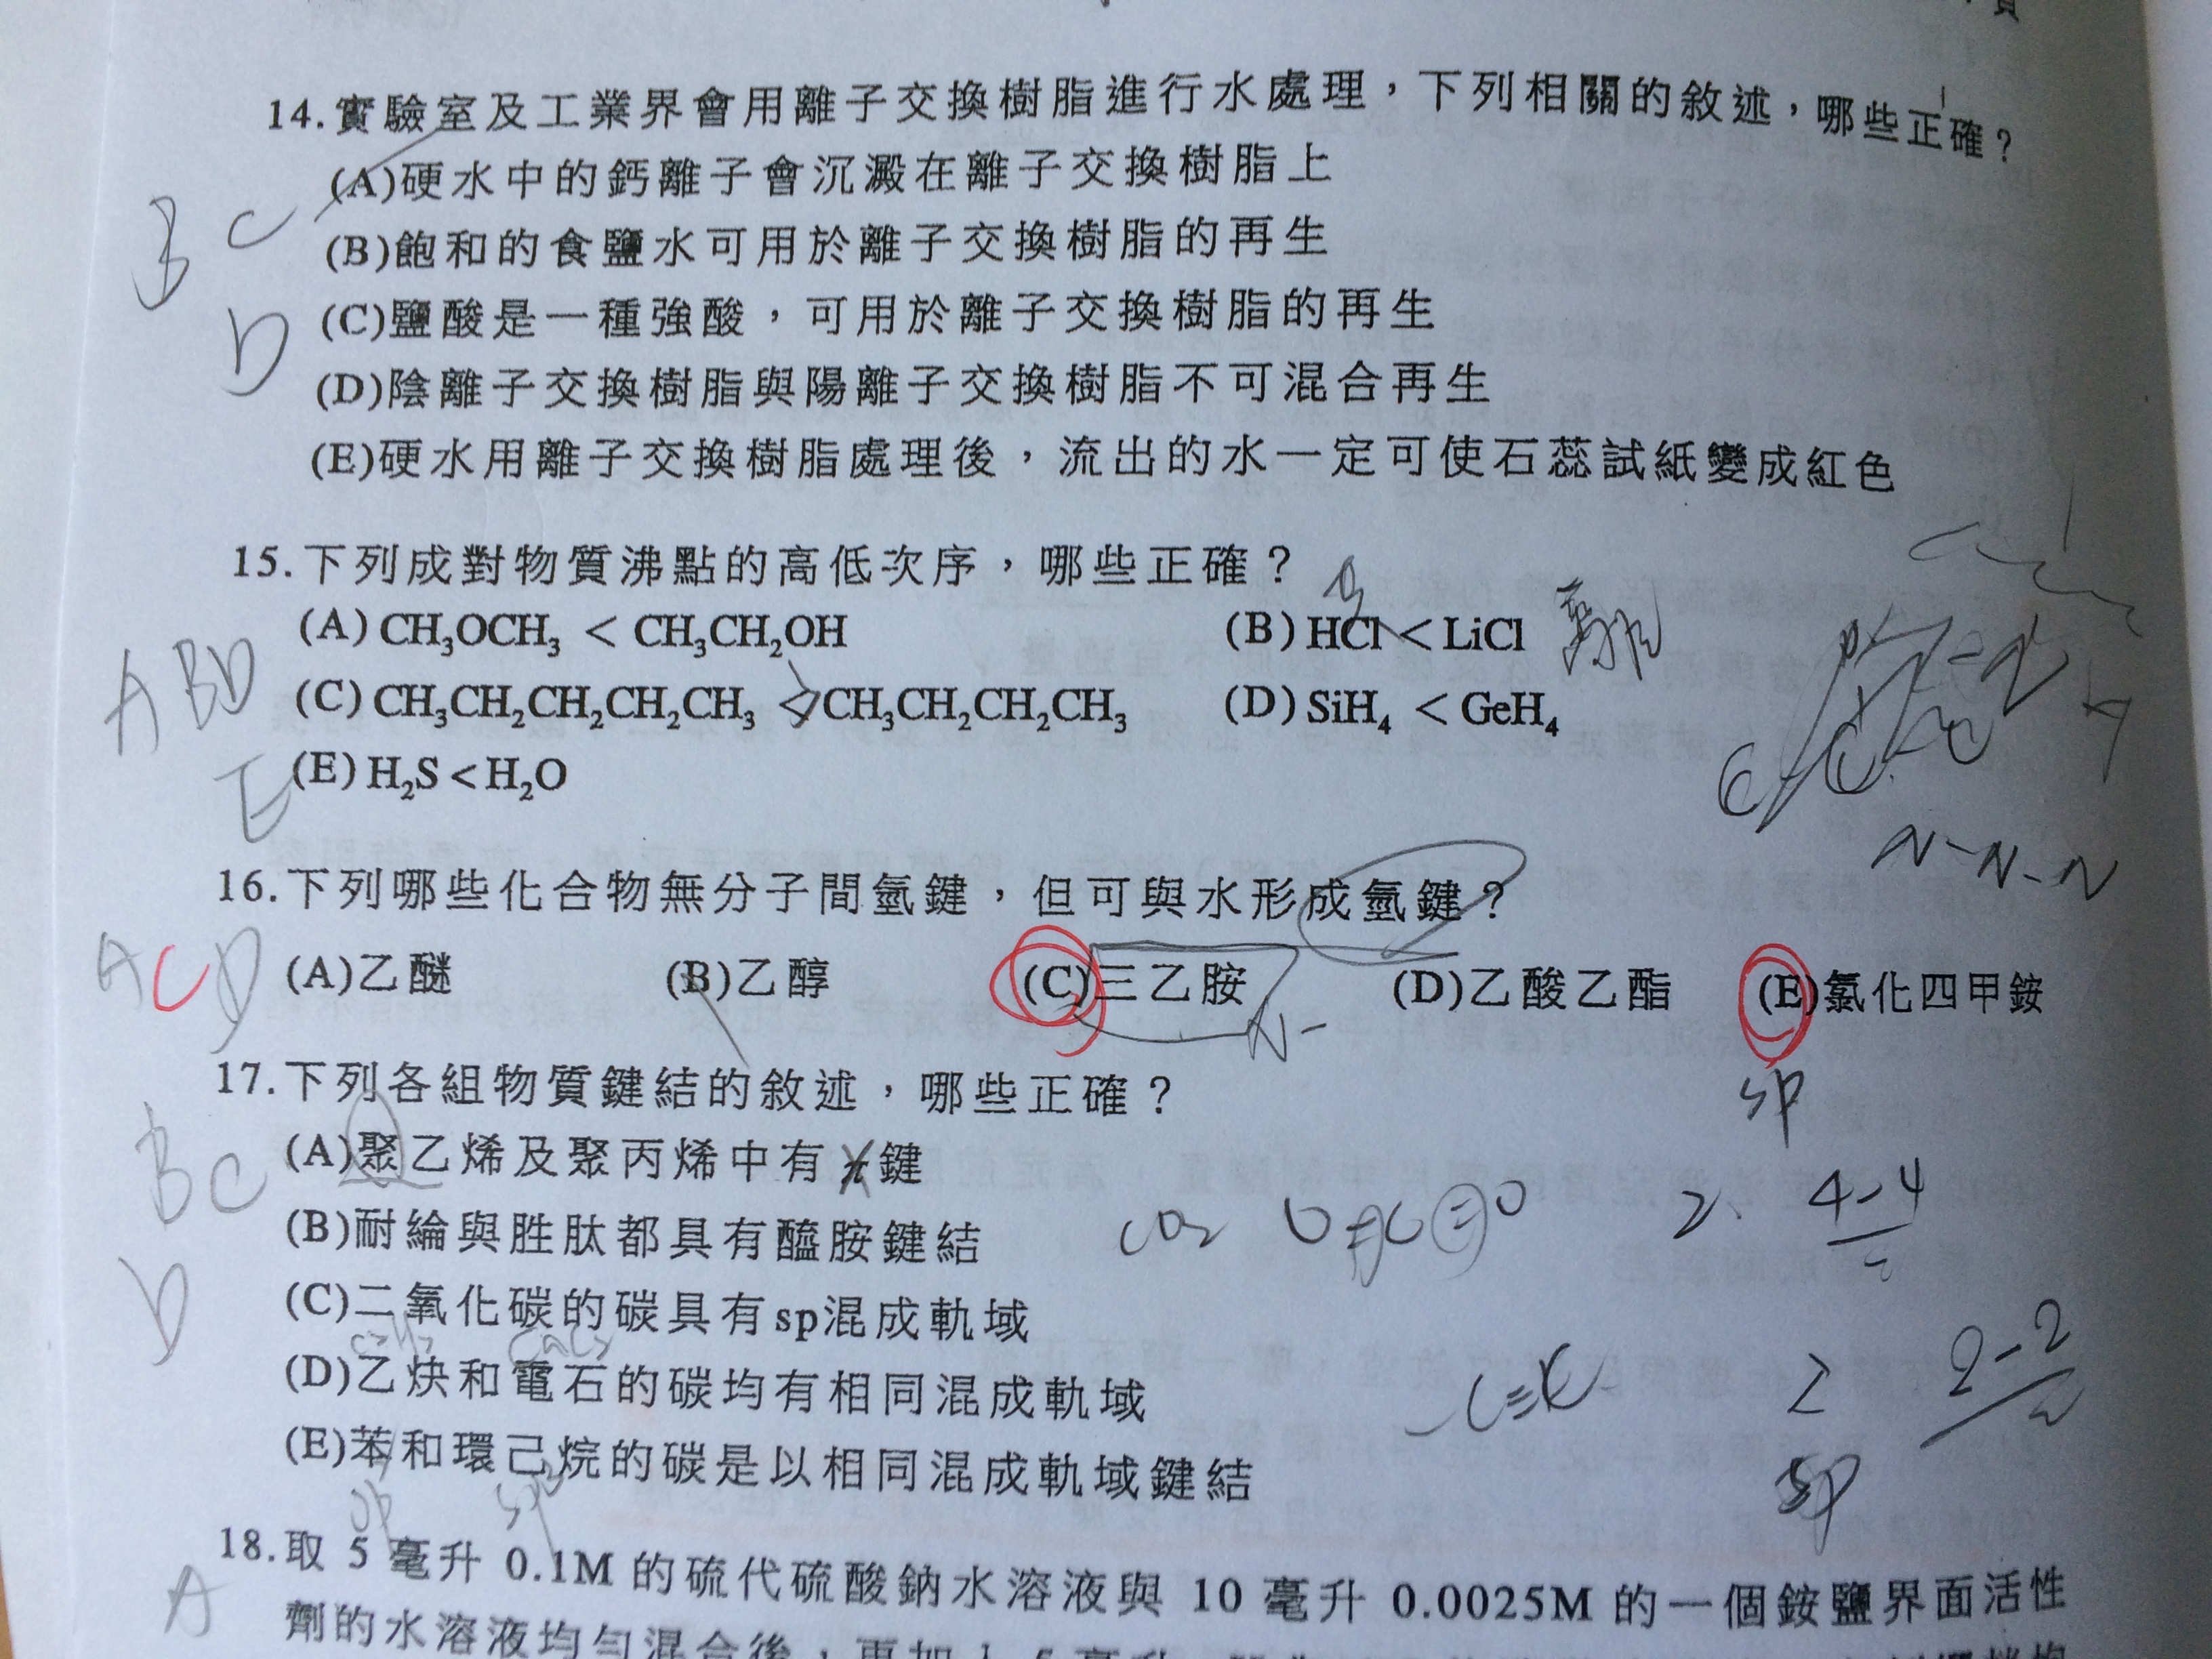 14.實驗室及工業界會用離子交換樹脂進行水處理，下列相關的敘述，哪些正確？
(A)硬水中的鈣離子會沉澱在離子交換樹脂上
(B)飽和的食鹽水可用於離子交換樹脂的再生
(C)鹽酸是一種強酸，可用於離子交換樹脂的再生
(D)陰離子交換樹脂與陽離子交換樹脂不可混合再生
(E)硬水用離子交換樹脂處理後，流出的水一定可使石蕊試紙變成紅色
B C
D
15.下列成對物質沸點的高低次序，哪些正確？
(A) CH₃OCH₃ < CH₃CH₂OH (B) HCl < LiCl
(C) CH₃CH₂CH₂CH₂CH₃ < CH₃CH₂CH₂CH₃ (D) SiH₄ < GeH₄
(E) H₂S < H₂O
ABD
E
N-N-N
16.下列哪些化合物無分子間氫鍵，但可與水形成氫鍵？
(A)乙醚 (B)乙醇 (C)三乙胺 (D)乙酸乙酯 (E)氯化四甲銨
ACD
N-
sp
17.下列各組物質鍵結的敘述，哪些正確？
(A)聚乙烯及聚丙烯中有π鍵
(B)耐綸與胜肽都具有醯胺鍵結
(C)二氧化碳的碳具有sp混成軌域
(D)乙炔和電石的碳均有相同混成軌域
(E)苯和環己烷的碳是以相同混成軌域鍵結
BC
D
CO₂ O=C=O 2 4-4
C₂H₂ CaC₂
2 2-2
sp
18.取 5 毫升 0.1M 的硫代硫酸鈉水溶液與 10 毫升 0.0025M 的一個銨鹽界面活性
劑的水溶液均勻混合後，再加入 5 毫升
A